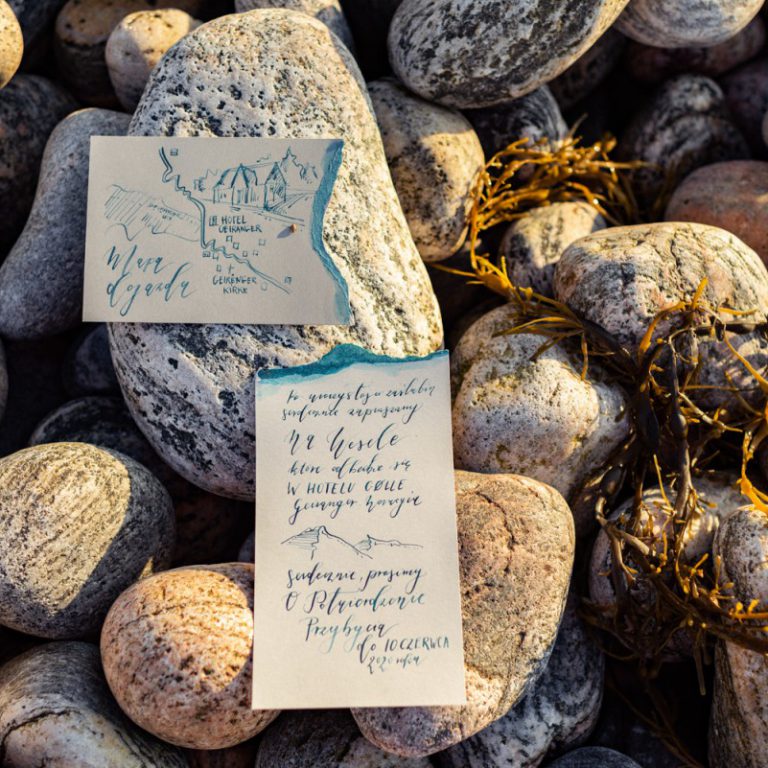 HOTEL
GEIRANGER
Mapa
dojazdu
GEIRENGER
KIRKE
Po uroczystości zaślubin
serdecznie zapraszamy
Na Wesele
które odbędzie się
W HOTELU GØLLE
Geiranger Norwegia
Serdecznie, prosimy
O Potwierdzenie
Przybycia
do 10 CZERWCA
2020 roku